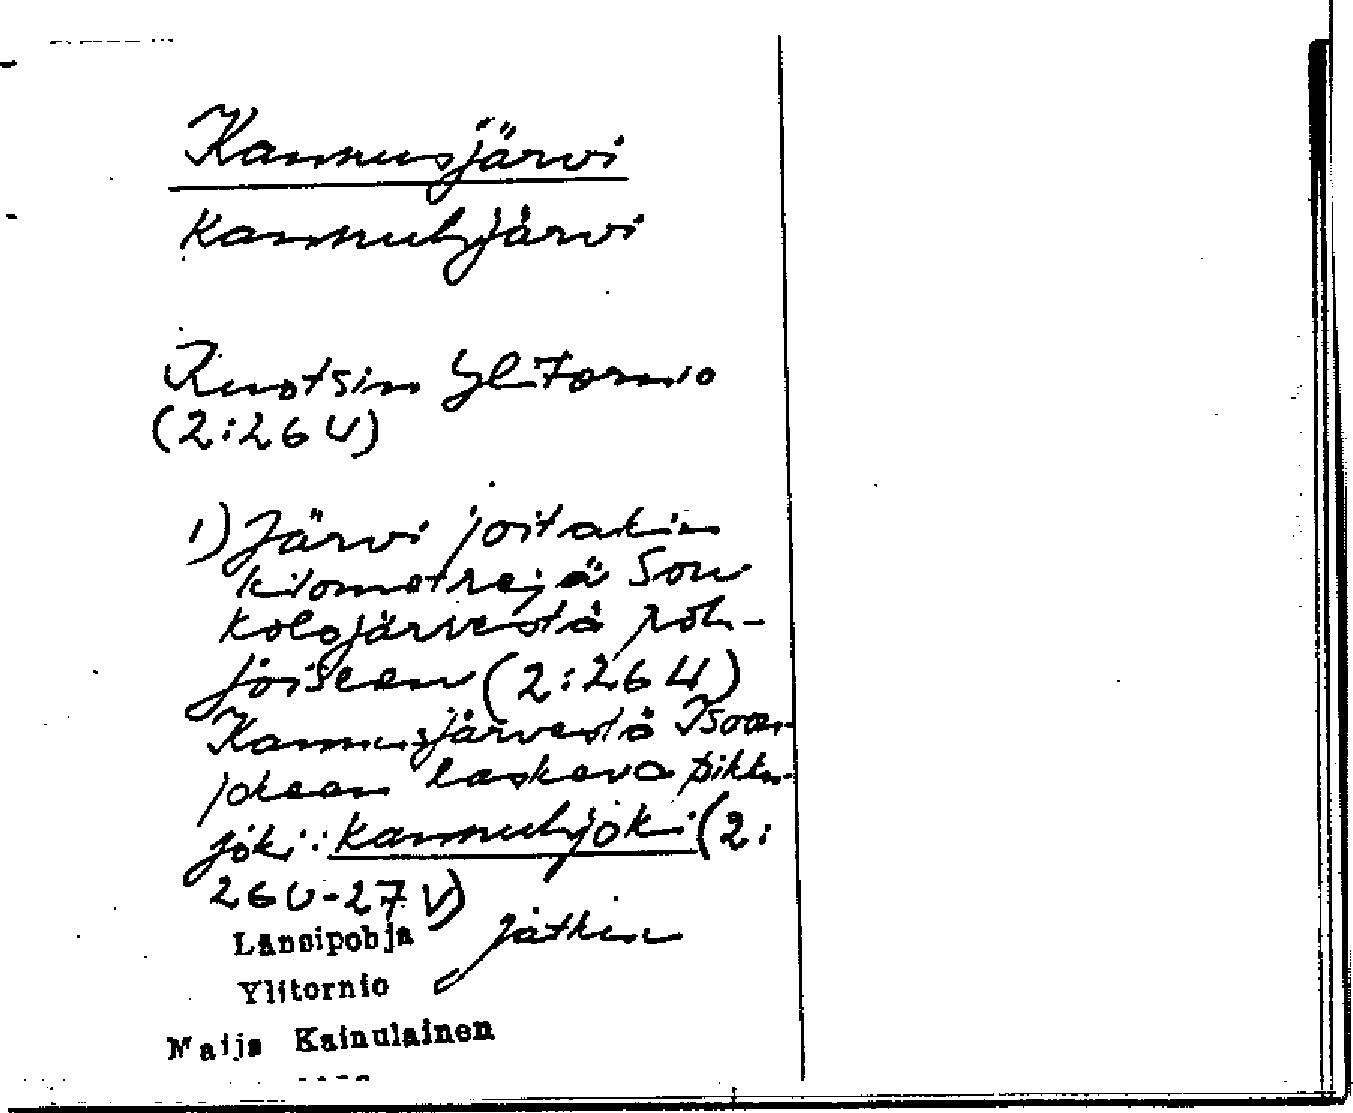 Kannusjärvi
kannuhjärvi
Ruotsin Ylitornio
(2:26 U)
1) Järvi joitakin
kilometrejä Sou
kolojärvestä poh-
joiseen (2:26 U)
Kannusjärvestä Isoon-
jokeen laskeva pikku-
joki: kannuhjoki (2:
26 U-27 V)
Länsipohja jatkuu
Ylitornio
Maija Kainulainen